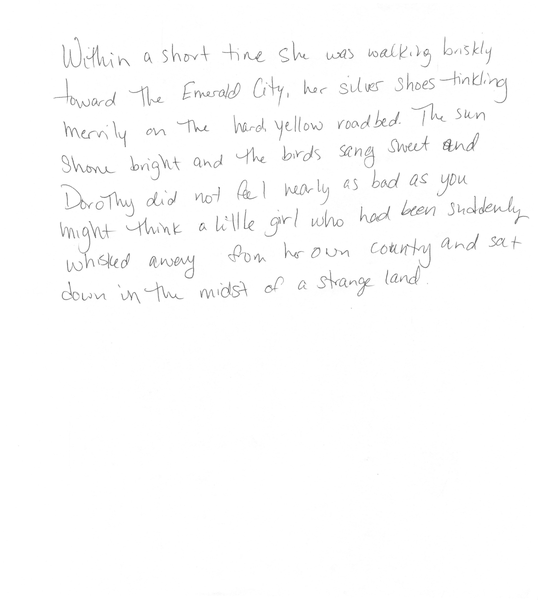 Within a short time she was walking briskly
toward the Emerald City, her silver shoes tinkling
merrily on the hard yellow roadbed. The sun
shone bright and the birds sang sweet and
Dorothy did not feel nearly as bad as you
might think a little girl who had been suddenly
whisked away from her own country and sat
down in the midst of a strange land.